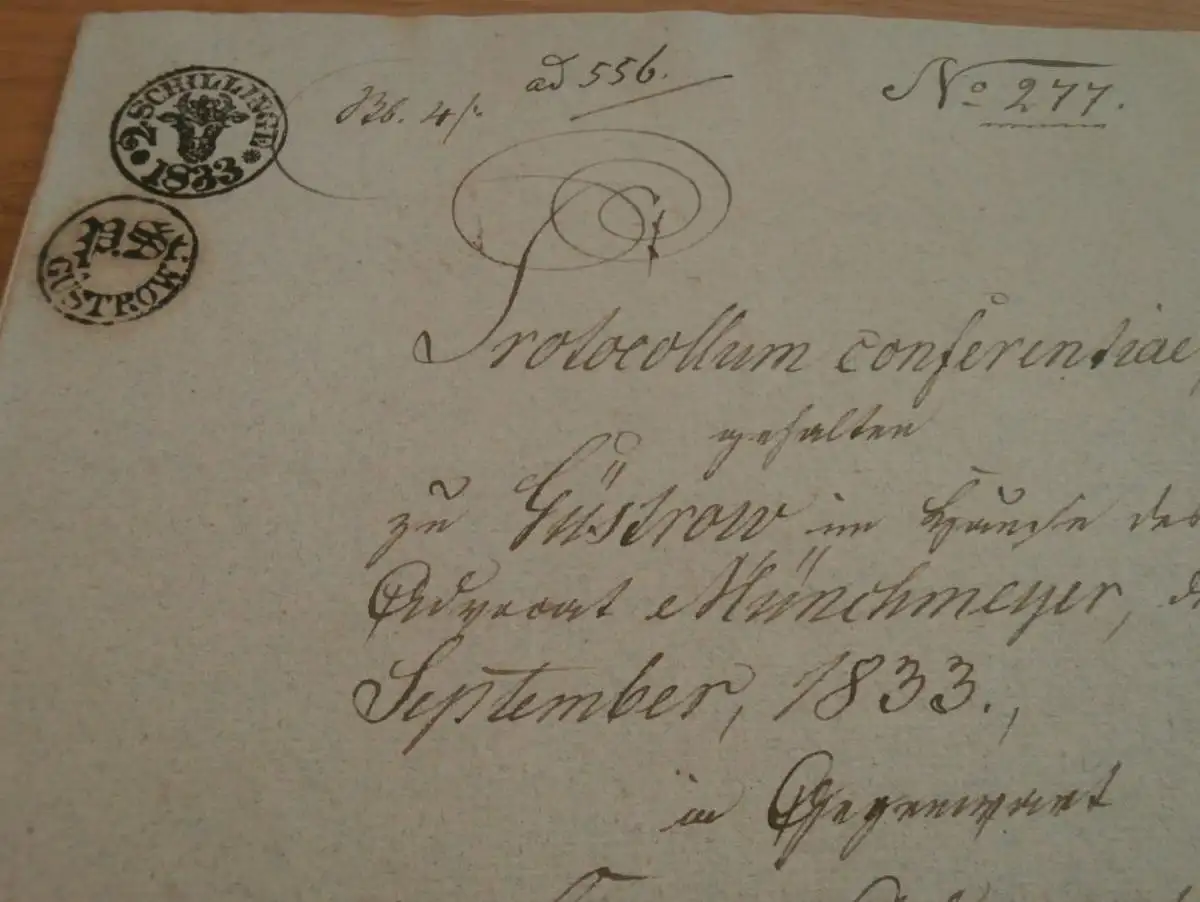 2 SCHILLINGE
1833
P.S.
GÜSTROW
ad 556.
No 277.
Protocollum conferentiae,
gehalten
zu Güstrow im Hause des
Advocat Münchmeyer, d
September, 1833.,
in Gegenwart